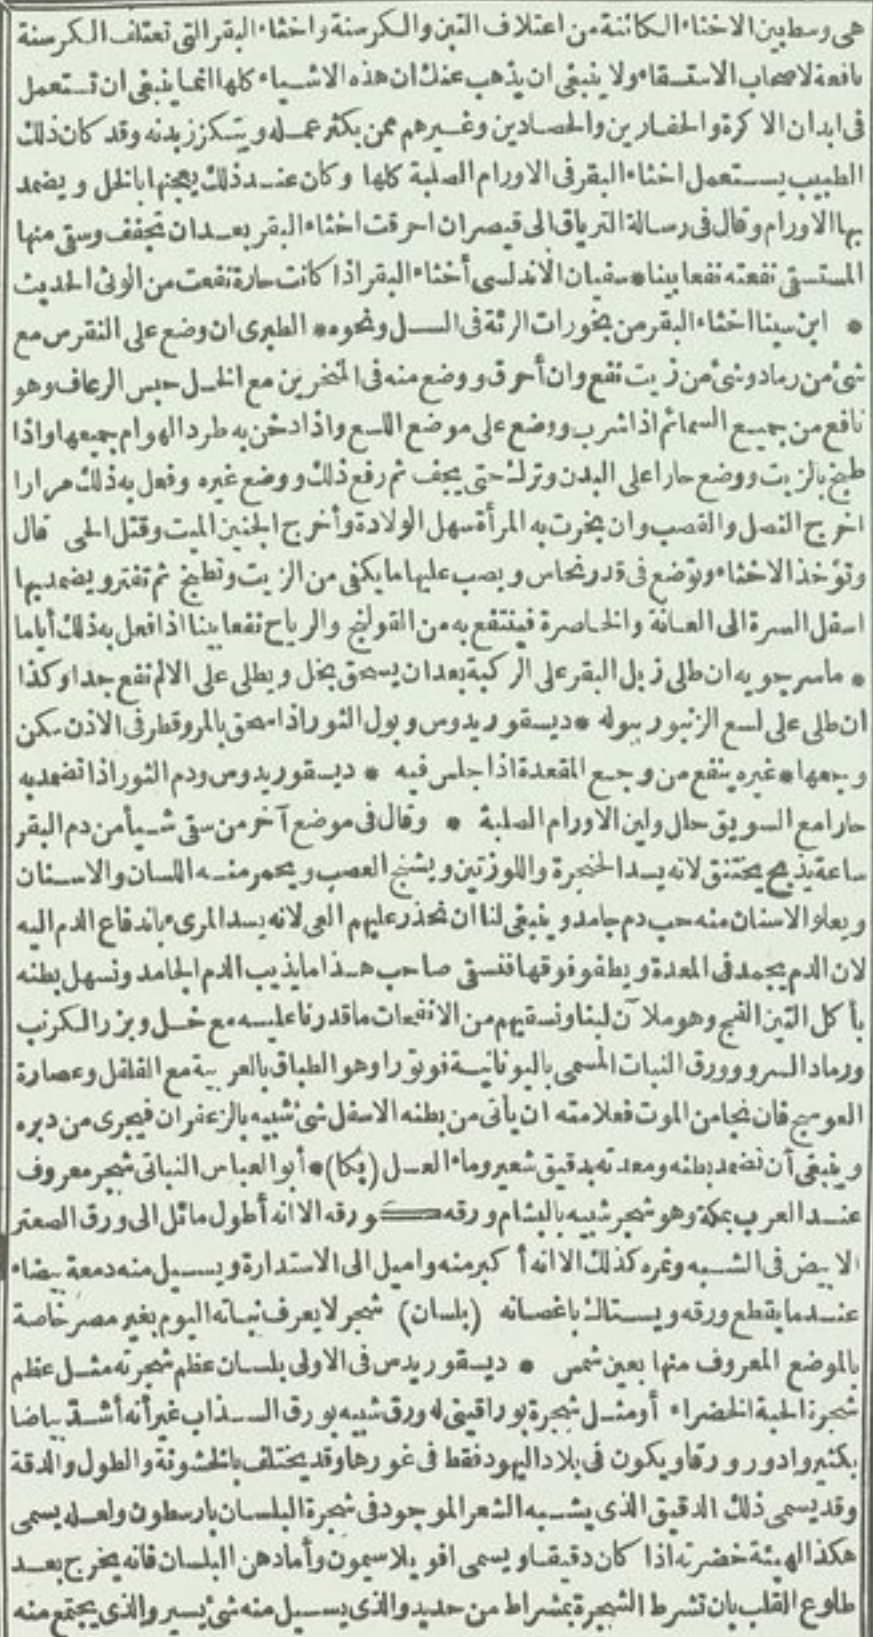 هى وسط بين الاخثاء الكائنة من اعتلاف التين والكرسنة واخثاء البقر التى تعتلف الكرسنة
نافعة لاصحاب الاستسقاء ولا ينبغى ان يذهب عنك ان هذه الاشياء كلها انما ينبغى ان تستعمل
فى ابدان الاكرة والحفارين والحصادين وغيرهم ممن يكثر عمله ويتكزز بدنه وقد كان ذلك
الطبيب يستعمل اخثاء البقر فى الاورام الصلبة كلها وكان عند ذلك يعجنها بالخل ويضمد
بها الاورام وقال فى رسالة الترياق الى قيصران احرقت اخثاء البقر بعد ان تجفف وسقى منها
المستسقى نفعته نفعا بينا * سفيان الاندلسى أخثاء البقر اذا كانت حارة نفعت من الوثى الحديث
* ابن سينا اخثاء البقر من بخورات الرئة فى السل ونحوه * الطبرى ان وضع على النقرس مع
شئ من رماد وشئ من زيت نفع وان أحرق ووضع منه فى المنخرين مع الخل حبس الرعاف وهو
نافع من جميع السمائم اذا شرب ووضع على موضع اللسع واذا دخن به طرد الهوام جميعها واذا
طبخ بالزيت ووضع حارا على البدن وترك حتى يجف ثم رفع ذلك ووضع غيره وفعل به ذلك مرارا
اخرج النصل والقصب وان بخرت به المرأة سهل الولادة وأخرج الجنين الميت وقتل الحى قال
وتؤخذ الاخثاء وتوضع فى قدر نحاس ويصب عليها ما يكفى من الزيت وتطبخ ثم تفتر ويضمد بها
اسفل السرة الى العانة والخاصرة فينتفع به من القولنج والرياح نفعا بينا اذا فعل به ذلك أياما
* ماسرجويه ان طلى زبل البقر على الركبة بعد ان يسحق بخل ويطلى على الالم نفع جدا وكذا
ان طلى على لسع الزنبور ببوله * ديسقوريدوس وبول الثور اذا سحق بالمر وقطر فى الاذن سكن
وجعها * غيره ينفع من وجع المقعدة اذا جلس فيه * ديسقوريدوس ودم الثور اذا تضمد به
حارا مع السويق حلل ولين الاورام الصلبة * وقال فى موضع آخر من سقى شيأ من دم البقر
ساعة يذبح يختنق لانه يسد الحنجرة واللوزتين ويشنج العصب ويحمر منه اللسان والاسنان
ويعلو الاسنان منه حب دم جامد وينبغى لنا ان نحذر عليهم القى لانه يسد المرىء باندفاع الدم اليه
لان الدم يجمد فى المعدة ويطفو فوقها فنسقى صاحب هذا ما يذيب الدم الجامد ونسهل بطنه
بأكل التين الفج وهو ملآن لبنا ونسقيهم من الانفحات ما قدرنا عليه مع خل وبزر الكرنب
ورماد السرو وورق النبات المسمى باليونانية فونورا وهو الطباق بالعربية مع الفلفل وعصارة
العوسج فان نجا من الموت فعلامته ان يأتى من بطنه الاسفل شئ شبيه بالزعفران فيجرى من دبره
وينبغى أن نضمد بطنه ومعدته بدقيق شعير وماء العسل (بكا) * أبو العباس النباتى شجر معروف
عند العرب بمكة وهو شجر شبيه بالبشام ورقه كورقه الا انه أطول مائل الى ورق الصعتر
الابيض فى الشبه وثمره كذلك الا انه أكبر منه واميل الى الاستدارة ويسيل منه دمعة بيضاء
عند ما يقطع ورقه ويستاك باغصانه (بلسان) شجر لا يعرف نباته اليوم بغير مصر خاصة
بالموضع المعروف منها بعين شمس * ديسقوريدس فى الاولى بلسان عظم شجرته مثل عظم
شجرة الحبة الخضراء أو مثل شجرة بوراقينى له ورق شبيه بورق السذاب غير أنه أشد بياضا
بكثير وادور ورقا ويكون فى بلاد اليهود فقط فى غورها وقد يختلف بالخشونة والطول والدقة
وقد يسمى ذلك الدقيق الذى يشبه الشعر الموجود فى شجرة البلسان بارسطون ولعله يسمى
هكذا لهيئة خضرته اذا كان دقيقا ويسمى افويلاسيمون وأما دهن البلسان فانه يخرج بعد
طلوع القلب بان تشرط الشجرة بمشراط من حديد والذى يسيل منه شئ يسير والذى يجتمع منه